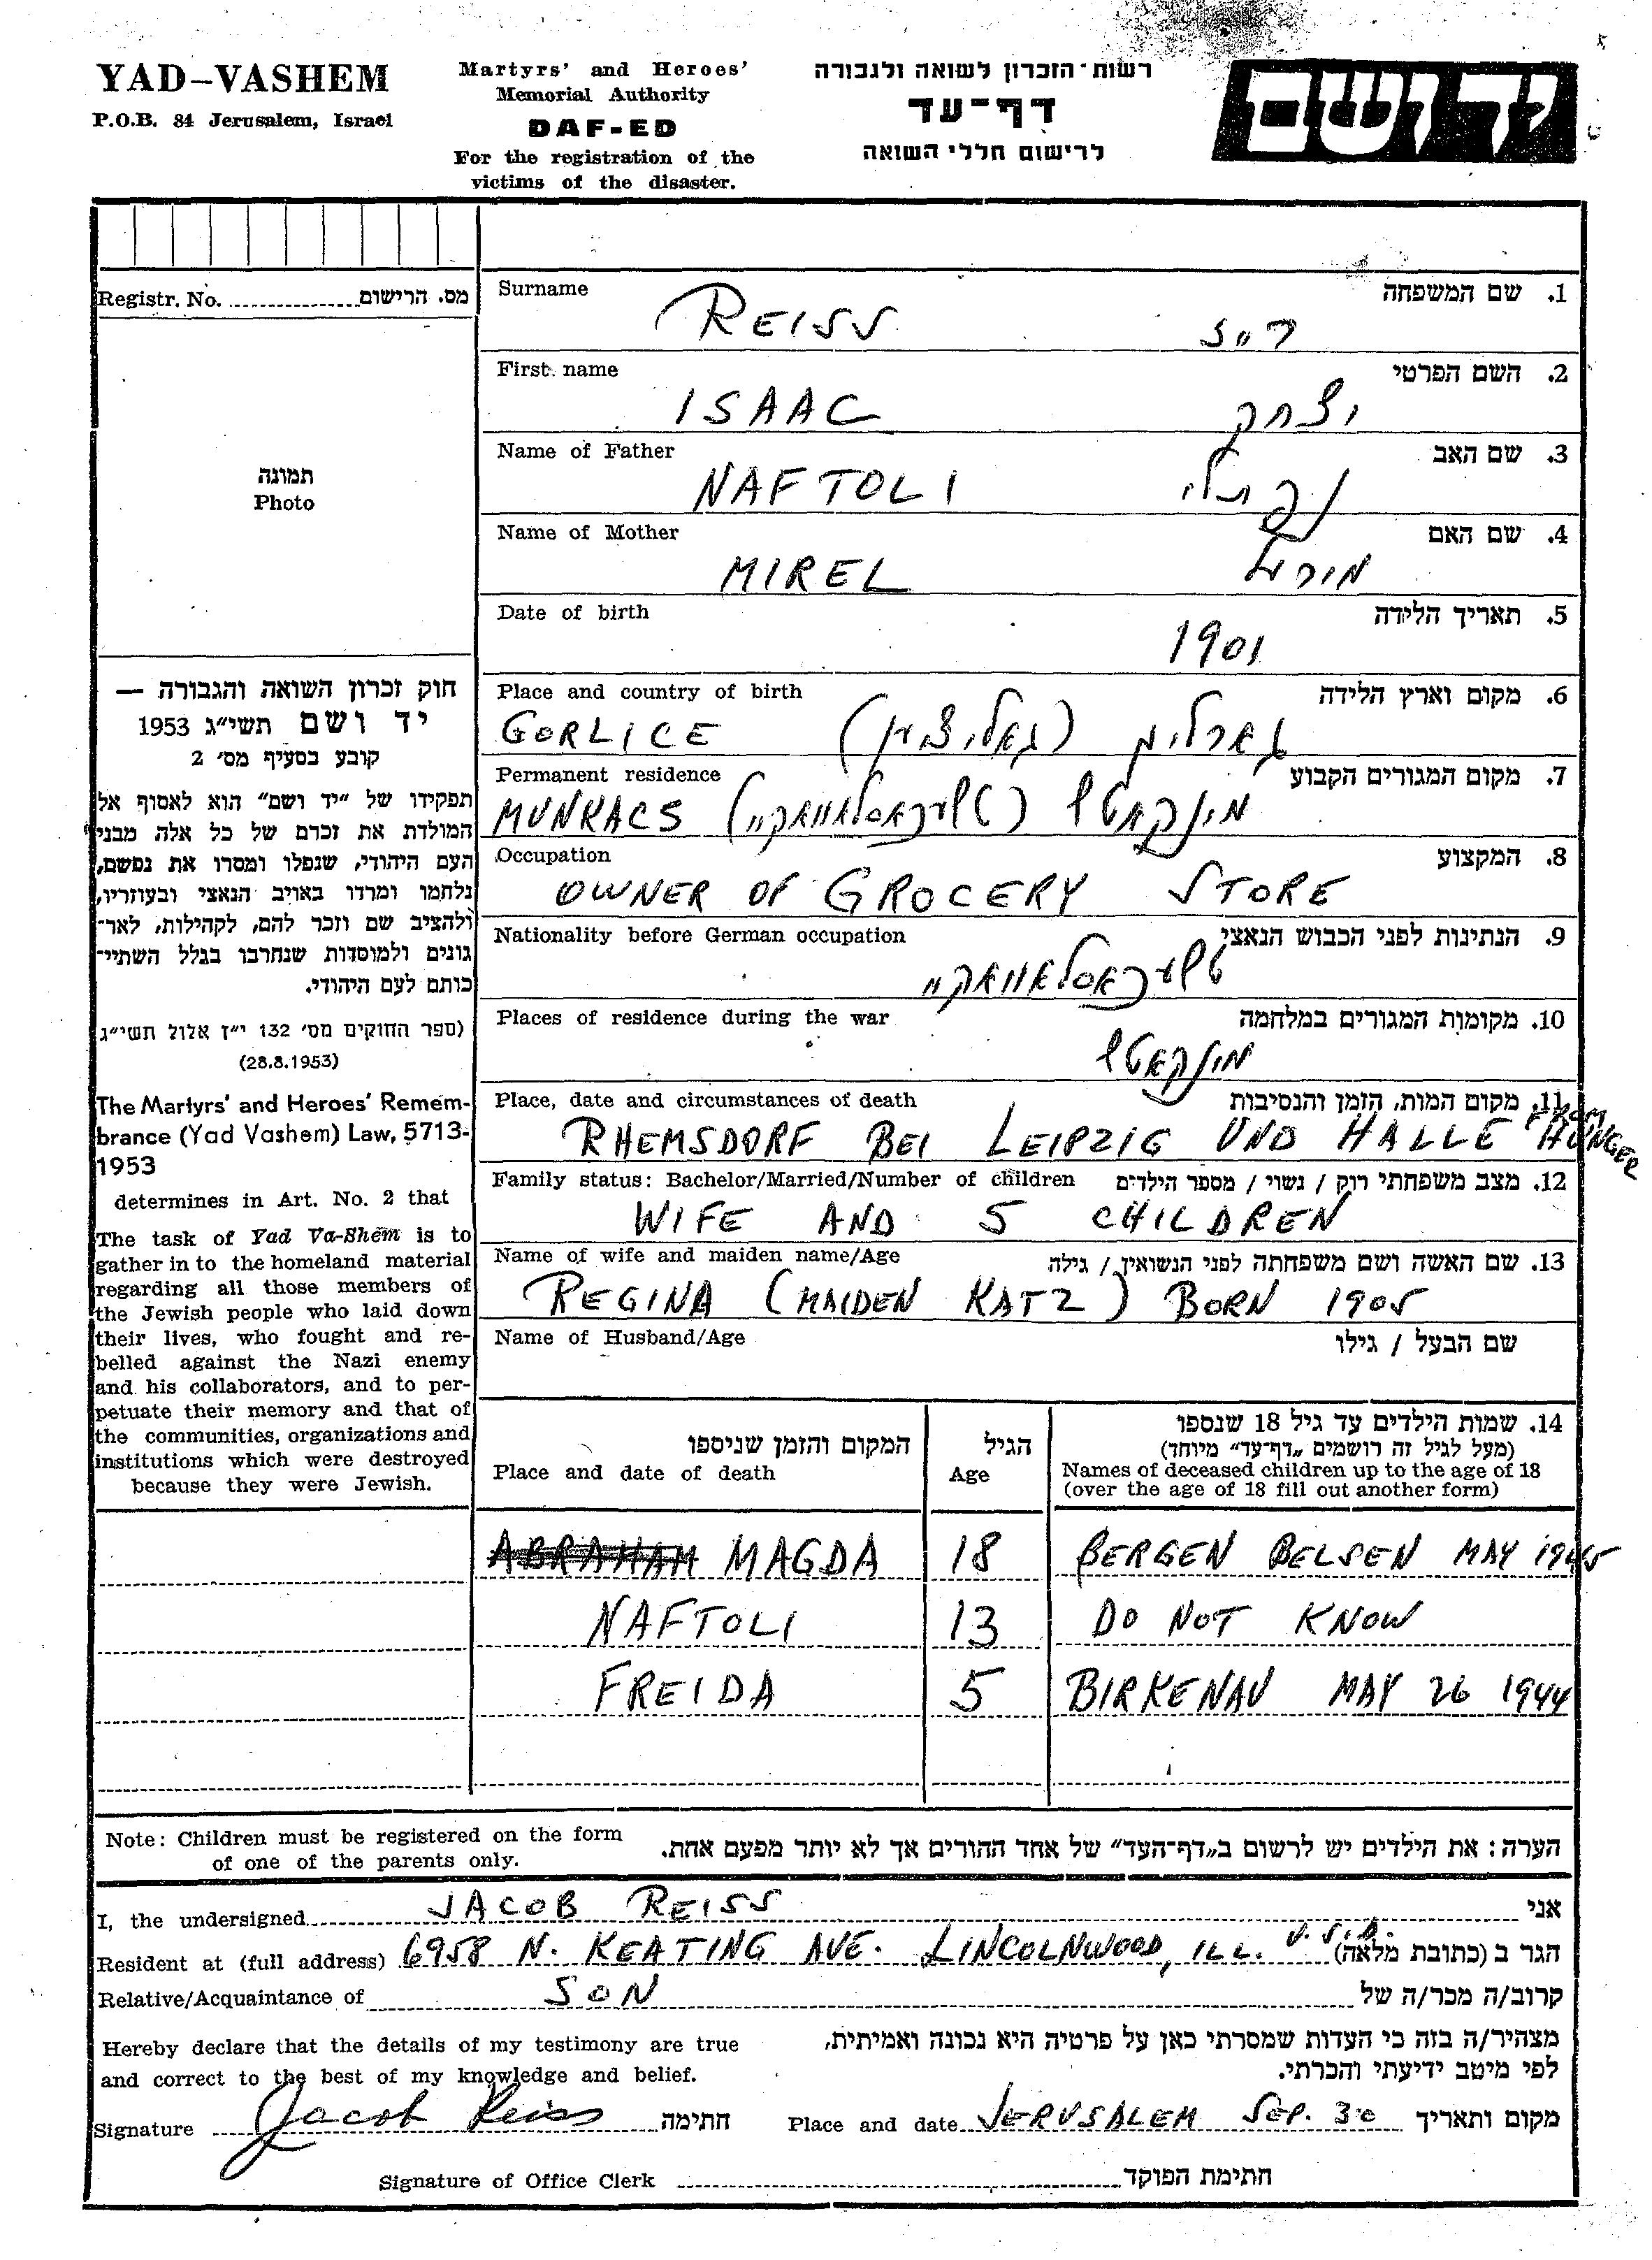 YAD-VASHEM
P.O.B. 84 Jerusalem, Israel
Martyrs' and Heroes'
Memorial Authority
DAF-ED
For the registration of the
victims of the disaster.
רשות-הזכרון לשואה ולגבורה
דף-עד
לרישום חללי השואה
יד ושם
Registr. No. מס. הרישום
תמונה
Photo
חוק זכרון השואה והגבורה —
יד ושם תשי״ג 1953
קובע בסעיף מס׳ 2
תפקידו של ״יד ושם״ הוא לאסוף אל
המולדת את זכרם של כל אלה מבני
העם היהודי, שנפלו ומסרו את נפשם,
נלחמו ומרדו באויב הנאצי ובעוזריו,
ולהציב שם וזכר להם, לקהילות, לאר־
גונים ולמוסדות שנחרבו בגלל השתיי־
כותם לעם היהודי.
(ספר החוקים מס׳ 132 י״ז אלול תשי״ג
(28.8.1953)
The Martyrs' and Heroes' Remem-
brance (Yad Vashem) Law, 5713-
1953
determines in Art. No. 2 that
The task of Yad Va-Shem is to
gather in to the homeland material
regarding all those members of
the Jewish people who laid down
their lives, who fought and re-
belled against the Nazi enemy
and his collaborators, and to per-
petuate their memory and that of
the communities, organizations and
institutions which were destroyed
because they were Jewish.
Surname 1. שם המשפחה
REISS רייז
First name 2. השם הפרטי
ISAAC יצחק
Name of Father 3. שם האב
NAFTOLI נפתלי
Name of Mother 4. שם האם
MIREL מירעל
Date of birth 5. תאריך הלידה
1901
Place and country of birth 6. מקום וארץ הלידה
GORLICE (גאליציען)
Permanent residence 7. מקום המגורים הקבוע
MUNKACS מונקאטש (טשעכאסלאוואקיי)
Occupation 8. המקצוע
OWNER OF GROCERY STORE
Nationality before German occupation 9. הנתינות לפני הכבוש הנאצי
טשעכאסלאוואקיי
Places of residence during the war 10. מקומות המגורים במלחמה
מונקאטש
Place, date and circumstances of death 11. מקום המות, הזמן והנסיבות
RHEMSDORF BEI LEIPZIG UND HALLE FROM HUNGER
Family status: Bachelor/Married/Number of children 12. מצב משפחתי רוק / נשוי / מספר הילדים
WIFE AND 5 CHILDREN
Name of wife and maiden name/Age 13. שם האשה ושם משפחתה לפני הנשואין / גילה
REGINA (MAIDEN KATZ) BORN 1905
Name of Husband/Age שם הבעל / גילו
14. שמות הילדים עד גיל 18 שנספו
(מעל לגיל זה רושמים „דף-עד״ מיוחד)
Names of deceased children up to the age of 18
(over the age of 18 fill out another form)
הגיל
Age
המקום והזמן שניספו
Place and date of death
ABRAHAM MAGDA 18 BERGEN BELSEN MAY 1945
NAFTOLI 13 DO NOT KNOW
FREIDA 5 BIRKENAU MAY 26 1944
Note: Children must be registered on the form
of one of the parents only.
הערה: את הילדים יש לרשום ב„דף-העד״ של אחד ההורים אך לא יותר מפעם אחת.
I, the undersigned JACOB REISS אני
Resident at (full address) 6958 N. KEATING AVE. LINCOLNWOOD, ILL. U.S.A. הגר ב (כתובת מלאה)
Relative/Acquaintance of SON קרוב/ה מכר/ה של
Hereby declare that the details of my testimony are true
and correct to the best of my knowledge and belief.
מצהיר/ה בזה כי העדות שמסרתי כאן על פרטיה היא נכונה ואמיתית,
לפי מיטב ידיעתי והכרתי.
Signature Jacob Reiss חתימה Place and date JERUSALEM SEP. 30 מקום ותאריך
Signature of Office Clerk חתימת הפוקד